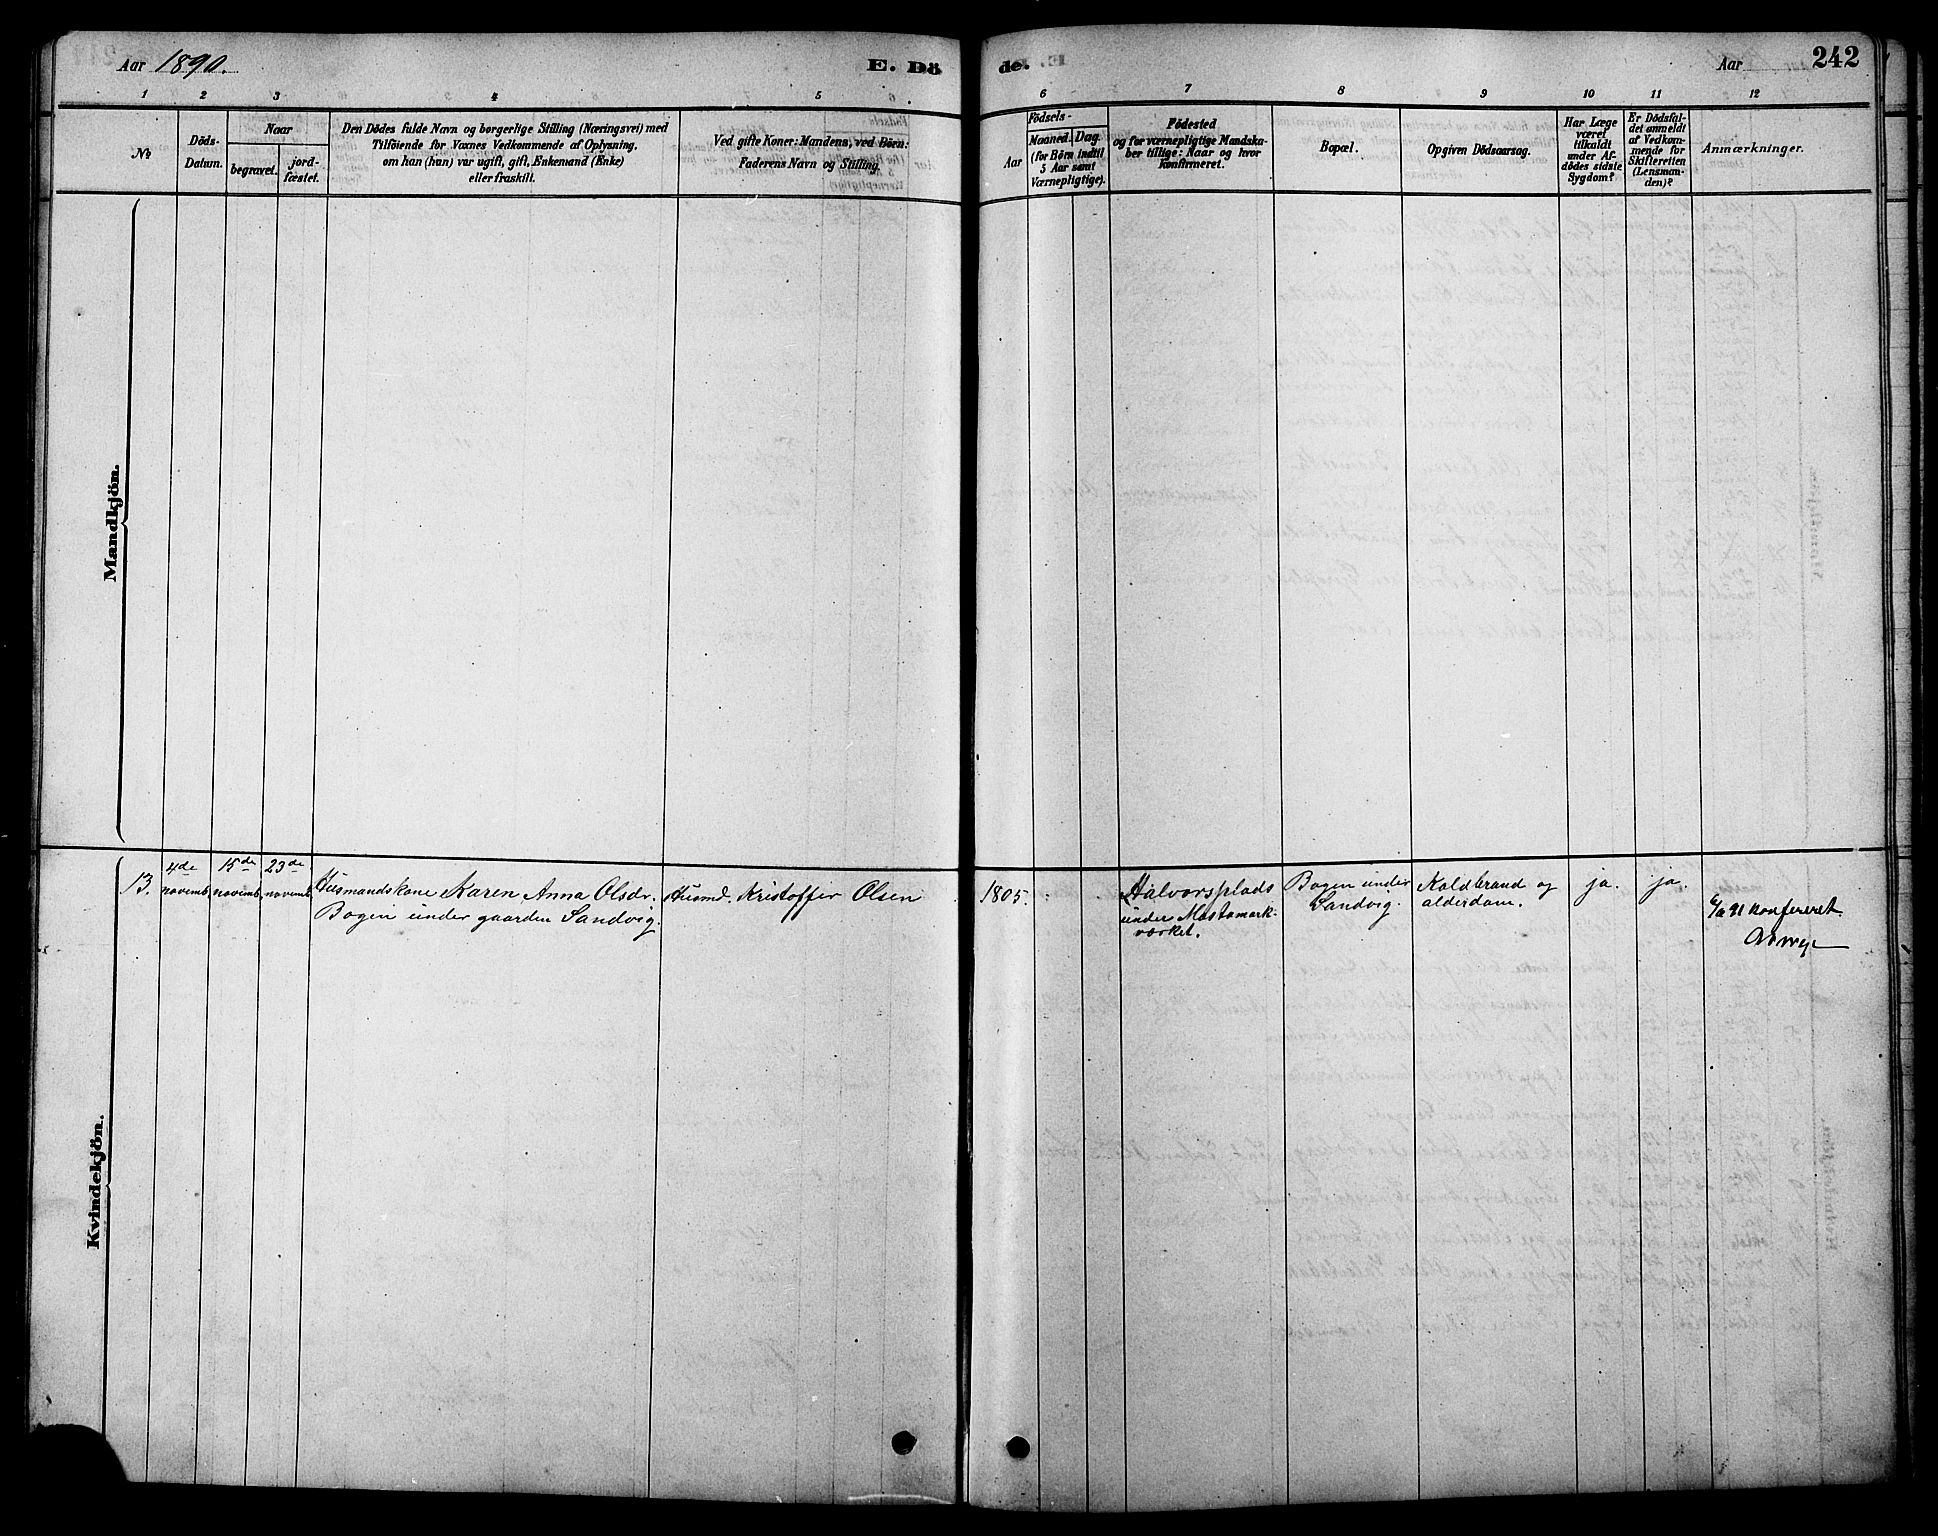 Aar 1890.
E. Dö
de.
Aar
242
1 2 3 4 5
6 7 8 9 10 11 12
No
Döds-
Datum.
Naar
begravet.
jord-
fæstet.
Den Dödes fulde Navn og borgerlige Stilling (Næringsvei) med
Tilföiende for Voxnes Vedkommende af Oplysning,
om han (hun) var ugift, gift, Enkemand (Enke)
eller fraskilt.
Ved gifte Koner: Mandens, ved Börn:
Faderens Navn og Stilling.
Födsels-
Aar
Maaned.
Dag.
(for Börn indtil
5 Aar samt
Værnepligtige).
Födested
og for værnepligtige Mandska-
ber tillige: Naar og hvor
konfirmeret.
Bopæl.
Opgiven Dödsaarsag.
Har Læge
været
tilkaldt
under Af-
dödes sidste
Sygdom?
Er Dödsfal-
det anmeldt
af Vedkom-
mende for
Skifteretten
(Lensman-
den)?
Anmærkninger.
Mandkjön.
Kvindekjön.
13.
4de
novemb.
15de
novemb.
23de
novemb.
Husmandskone Karen Anna Olsdr.
Bogen under gaarden Sandvig.
Husmd. Kristoffer Olsen
1805.
Halvorsplads
under Mostamark-
værket.
Bogen under
Sandvig.
Koldbrand og
alderdom.
ja.
ja.
91 konfereret